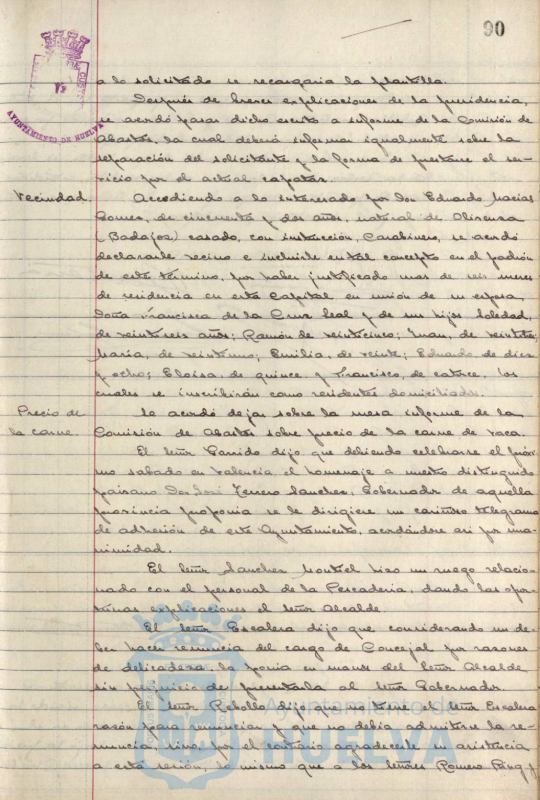 90
AYUNTAMIENTO DE HUELVA
a lo solicitado se recargaria la plantilla.
Después de breves explicaciones de la presidencia,
se acordó pasar dicho escrito a informe de la Comisión de
Abastos, la cual deberá informar igualmente sobre la
separación del solicitante y la forma de prestarse el ser-
vicio por el actual capataz.
Vecindad.
Accediendo a lo interesado por Don Eduardo Macías
Gomes, de cincuenta y dos años, natural de Olivenza
(Badajoz) casado, con instrucción, Carabinero, se acordó
declararle vecino e incluirle en tal concepto en el padrón
de este término, por haber justificado mas de seis meses
de residencia en esta Capital en unión de su esposa
Doña Francisca de la Cruz Leal y de sus hijos Soledad,
de veintiseis años; Ramón de veinticinco; Juan, de veintitres
María, de veintiuno; Emilia, de veinte; Eduardo de diez
y ocho; Eloisa, de quince y Francisco, de catorce, los
cuales se inscribirán como residentes domiciliados.
Precio de
la carne.
Se acordó dejar sobre la mesa informe de la
Comisión de Abastos sobre precio de la carne de vaca.
El Señor Garrido dijo que debiendo celebrarse el próxi
mo sabado en Valencia el homenaje a nuestro distinguido
paisano Don José Terrero Sanchez, Gobernador de aquella
provincia proponia se le dirigiere un cariñoso telegrama
de adhesión de este Ayuntamiento, acordándose asi por una-
nimidad.
El Señor Sanchez Montiel hizo un ruego relacio-
nado con el personal de la Pescadería, dando las opor-
tunas explicaciones el Señor Alcalde.
El Señor Escalera dijo que considerando un de-
ber hacer renuncia del cargo de Concejal por razones
de delicadeza, la ponia en manos del Señor Alcalde
sin perjuicio de presentarla al Señor Gobernador.
El Señor Rebollo dijo que no tiene el Señor Escalera
razón para renunciar y que no debia admitirse la re-
nuncia, sino por el contrario agradecerle su asistencia
a esta sesión, lo mismo que a los Señores Romero
Ayuntamiento de
HUELVA